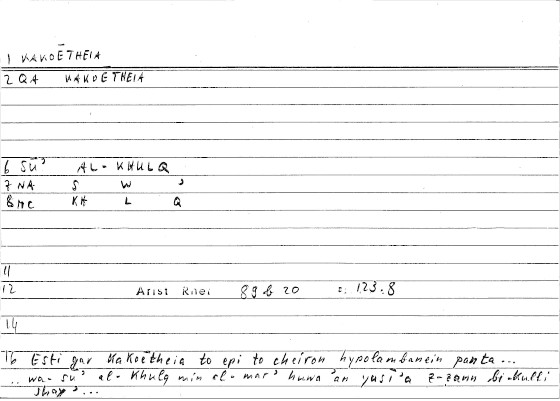 1 KAKOĒTHEIA
2 QA KAKOĒTHEIA
6 SŪ' AL-KHULQ
7 NA S W '
8 MC KH L Q
11
12 Arist Rhet 89 b 20 = 123.8
14
16 Esti gar kakoētheia to epi to cheiron hypolambanein panta...
.. wa-sū' al-khulq min al-mar' huwa 'an yusī'a z-zann bi-kulli
shay'...